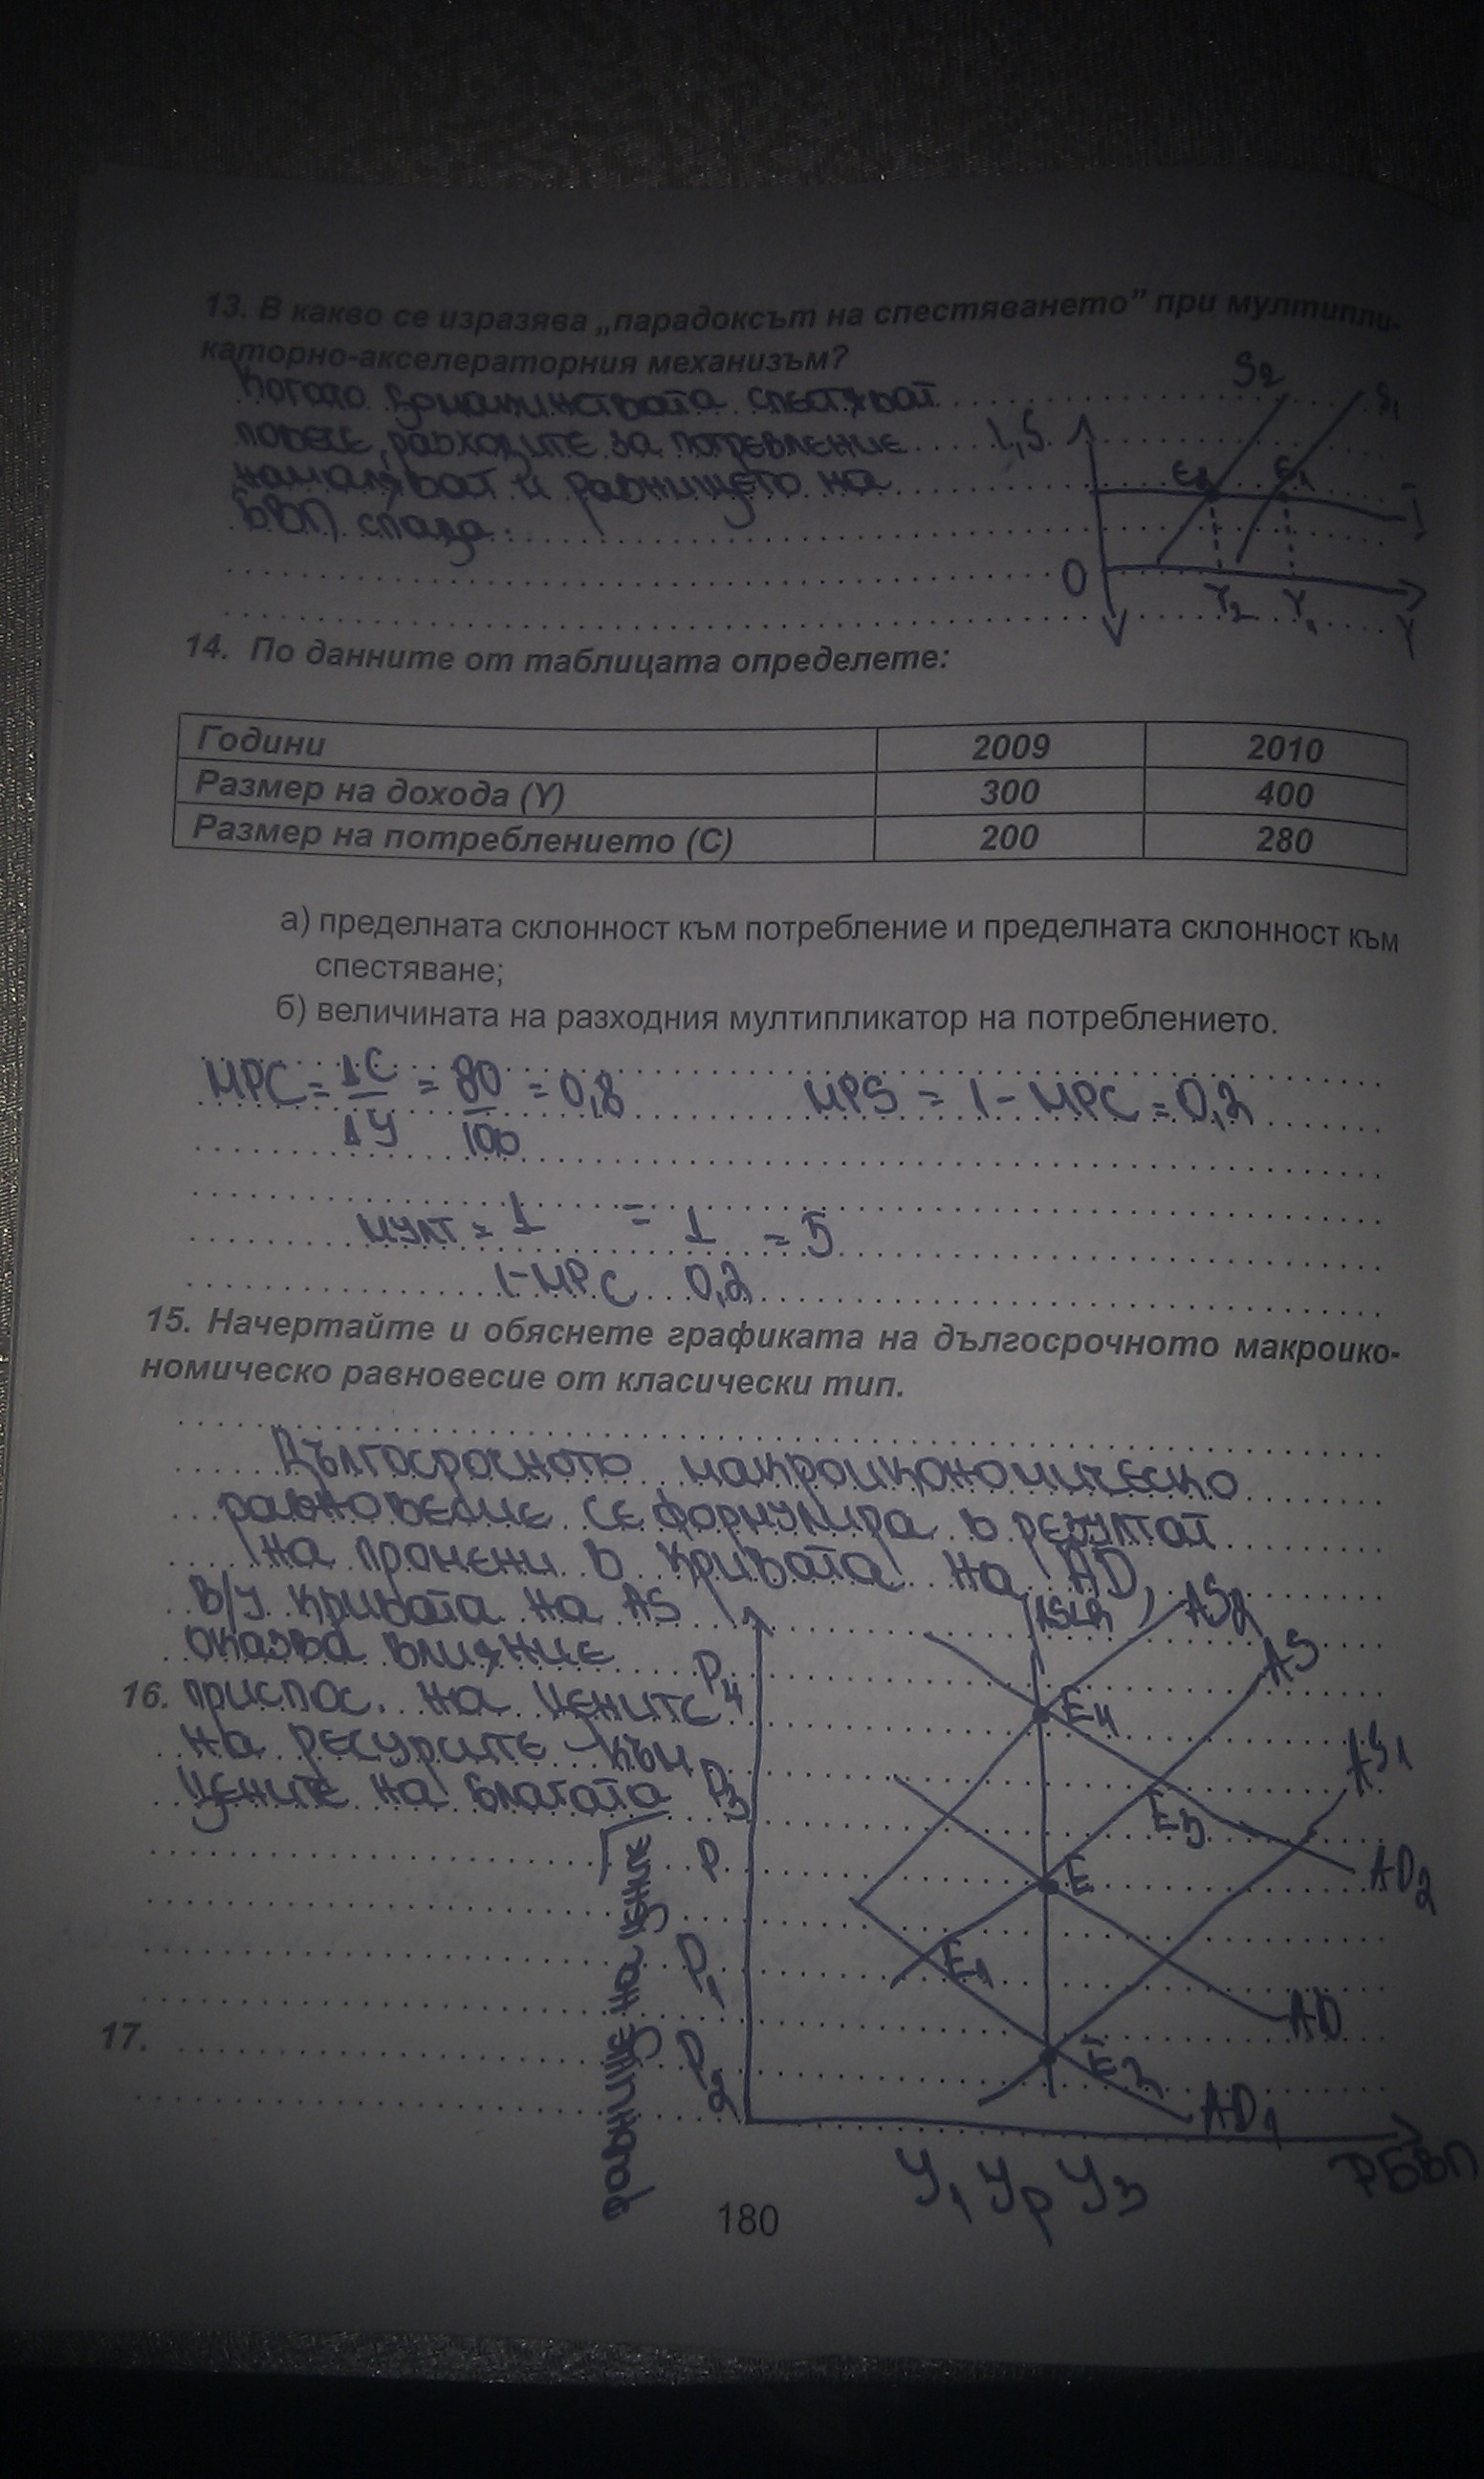 13. В какво се изразява „парадоксът на спестяването” при мултипли-
каторно-акселераторния механизъм?
Когато домакинствата спестяват
повече, разходите за потребление
намаляват и равнището на
БВП спада.
S2 S1
I, S
E2 E1
I
O
Y2 Y1 Y
14. По данните от таблицата определете:
Години 2009 2010
Размер на дохода (Y) 300 400
Размер на потреблението (C) 200 280
а) пределната склонност към потребление и пределната склонност към
спестяване;
б) величината на разходния мултипликатор на потреблението.
MPC = ΔC / ΔY = 80 / 100 = 0,8 MPS = 1 - MPC = 0,2
мулт = 1 / 1-MPC = 1 / 0,2 = 5
15. Начертайте и обяснете графиката на дългосрочното макроико-
номическо равновесие от класически тип.
Дългосрочното макроикономическо
равновесие се формулира в резултат
на промени в кривата на AD,
в/у кривата на AS
оказва влияние
16. приспос. на цените
на ресурсите към
цените на благата
17.
равнище на цените
P4
P3
P
P1
P2
ASLR AS2
AS
AS1
E4
E3
E
E1
E2
AD2
AD
AD1
У1 Ур У3
РБВП
180